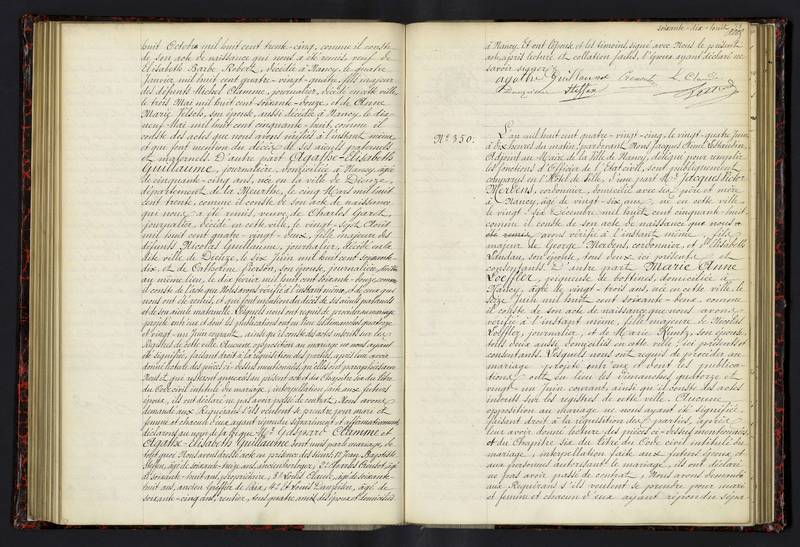 huit Octobre mil huit cent trente-cinq, comme il conste
de son acte de naissance qui nous a été remis, veuf de
Elisabeth Barbe Rebot, décédée à Nancy, le quatre
Janvier mil huit cent quatre-vingt-quatre, fils majeur
des défunts Michel Clamme, journalier, décédé en cette ville,
le trois Mai mil huit cent soixante-douze, et de Anne
Marie son épouse, aussi décédée à Nancy, le dix
neuf Mai mil huit cent cinquante-huit, comme il
conste des actes que nous avons vérifiés à l'instant même
et qui font mention du décès de ses aïeuls paternels
et maternels. D'autre part Agathe-Elisabeth
Guillaume, journalière, domiciliée à Nancy, âgée
de cinquante-cinq ans, née en la ville de Dieuze,
département de la Meurthe, le cinq Mars mil huit
cent trente, comme il conste de son acte de naissance
qui nous a été remis, veuve, de Charles Garot,
journalier, décédé en cette ville, le vingt-sept Août
mil huit cent quatre-vingt-deux, fille majeure des
défunts Nicolas Guillaume, journalier, décédé en la
dite ville de Dieuze, le six Juin mil huit cent soixante-
dix, et de Catherine Pierson, son épouse, journalière, décédée
au même lieu, le dix février mil huit cent soixante-douze, comme
il conste de l'acte que Nous avons vérifié à l'instant même, et de ceux qui
nous ont été remis, et qui font mention du décès de ses aïeuls paternels
et de son aïeule maternelle. Lesquels nous ont requis de procéder au mariage
projeté entre eux et dont les publications ont eu lieu les dimanches quatorze
et vingt-un Juin courant, ainsi qu'il conste des actes inscrits sur les
Registres de cette ville. Aucune opposition au mariage ne nous ayant
été signifiée, faisant droit à la réquisition des parties, après leur avoir
donné lecture des pièces ci-dessus mentionnées,
du Code civil intitulé du mariage, interpellation faite aux futurs
époux, ils ont déclaré ne pas avoir passé de contrat, Nous avons
demandé aux Requérants s'ils veulent se prendre pour mari et
femme et chacun d'eux ayant répondu séparément et affirmativement
déclarons au nom de la loi que Mr Gaspard Clamme et
Agathe-Elisabeth Guillaume sont unis par le mariage. De
tout quoi Nous avons dressé acte en présence des sieurs 1° Jean Baptiste
Steffin, âgé de soixante-treize ans, ancien horloger, 2° Charles
de soixante-huit ans, propriétaire, 3° Louis Claude, âgé de soixante-
huit ans, ancien greffier de paix, 4° et Louis âgé de
soixante-cinq ans, rentier, tous quatre, amis des époux et domiciliés
soixante-dix-huit 78
à Nancy. Et ont l'épouse et les témoins, signé avec Nous le présent
acte, après lecture et collation faites, l'époux ayant déclaré ne
savoir signer.
agathe Guillaume L. Claude
Steffin
No 350.
L'an mil huit cent quatre-vingt-cinq, le vingt-quatre Juin
à dix heures du matin, pardevant Nous Jacques Aimé
Adjoint au Maire de la Ville de Nancy, délégué pour remplir
les fonctions d'Officier de l'Etat civil, sont publiquement
comparus en l'Hôtel de Ville, d'une part Mr Jacques Victor
Mertens, cordonnier, domicilié avec ses père et mère
à Nancy, âgé de vingt-six ans, né en cette ville
le vingt-six Décembre mil huit cent cinquante-huit
comme il conste de son acte de naissance que nous
avons vérifié à l'instant même, fils
majeur de George Mertens, cordonnier, et de Elisabeth
Lindau, son épouse, tous deux ici présents et
consentants. D'autre part Marie Anne
Loeffler, piqueuse de bottines, domiciliée à
Nancy, âgée de vingt-trois ans, née en cette ville le
seize Juin mil huit cent soixante-deux, comme
il conste de son acte de naissance que nous avons
vérifié à l'instant même, fille majeure de Nicolas
Loeffler, journalier, et de Marie son épouse,
tous deux aussi domiciliés en cette ville, ici présents et
consentants. Lesquels nous ont requis de procéder au
mariage projeté entr'eux et dont les publica-
tions ont eu lieu les Dimanches quatorze et
vingt-un Juin courant, ainsi qu'il conste des actes
inscrits sur les registres de cette ville. Aucune
opposition au mariage ne nous ayant été signifiée,
faisant droit à la réquisition des parties, après
leur avoir donné lecture des pièces ci-dessus mentionnées
et du Chapitre six du titre du Code civil intitulé du
mariage, interpellation faite aux futurs époux et
aux personnes autorisant le mariage, ils ont déclaré
ne pas avoir passé de contrat, Nous avons demandé
aux Requérants s'ils veulent se prendre pour mari
et femme et chacun d'eux ayant répondu sépa-